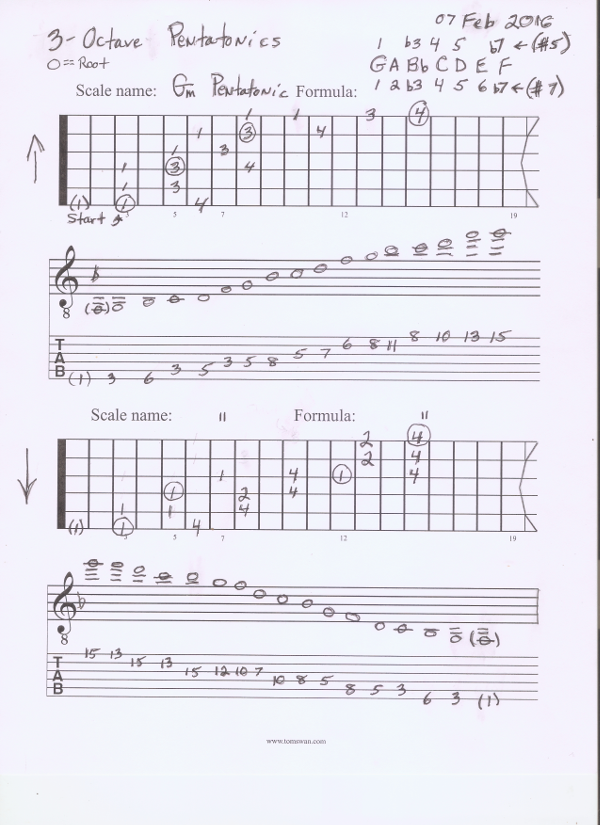 07 Feb 2016
3-Octave Pentatonics
1 b3 4 5 b7 ← (#5)
O = Root
G A Bb C D E F
1 2 b3 4 5 6 b7 ← (#7)
Scale name: Gm Pentatonic Formula:
1 1 3 4
1 3 4
1 3
1 3 4
1 3
(1) 1 4
Start 3 5 7 12 19
8
T A B
(1) 3 6 3 5 3 5 8 5 7 6 8 11 8 10 13 15
Scale name: " Formula: "
2 4
2 4
1 4 1 4
1 2 4
1 1 4
(1) 1 4
5 7 12 19
8
T A B
15 13 15 13 15 12 10 7 10 8 5 8 5 3 6 3 (1)
www.tomswan.com